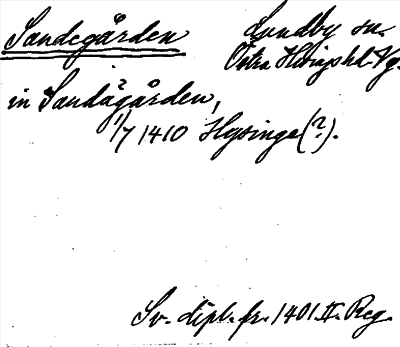 Sandegården
Lundby sn.
Östra Hisings hd. Vg.
in Sandagården,
1/7 1410 Hysinge(?).
Sv. dipl. fr. 1401 II. Reg.